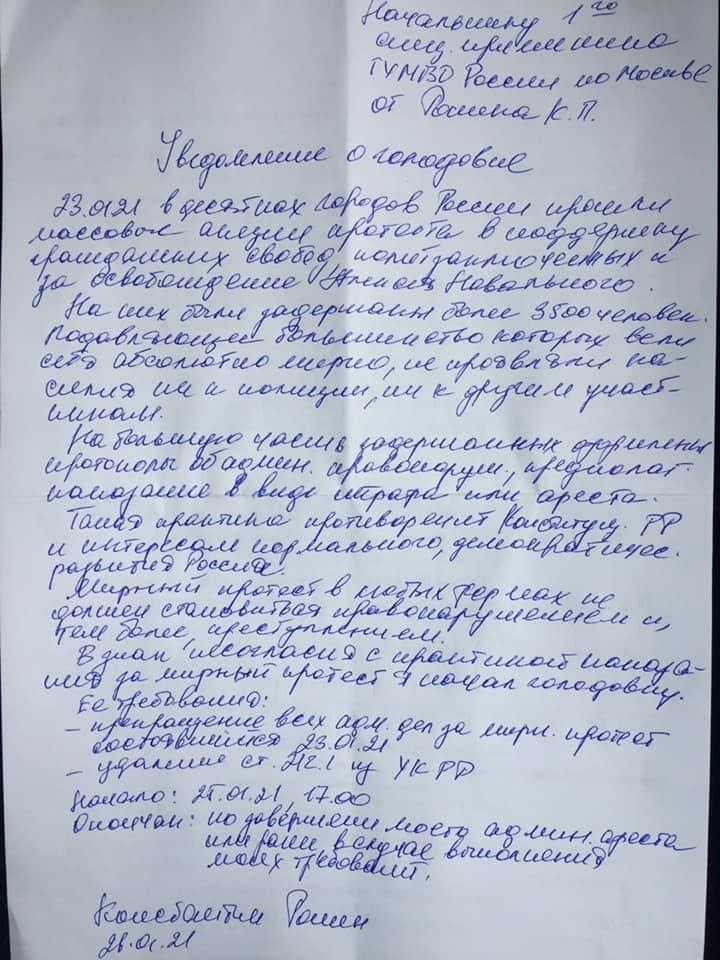 Начальнику 1го
спец. приемника
ГУМВД России по Москве
от Ромина К.П.
Уведомление о голодовке
23.01.21 в десятках городов России прошли
массовые акции протеста в поддержку
гражданских свобод, политзаключенных и
за освобождение Алексея Навального.
На них были задержаны более 3500 человек.
Подавляющее большинство которых вели
себя абсолютно мирно, не проявляли на-
силия ни к полиции, ни к другим участ-
никам.
На большую часть задержанных оформлены
протоколы об админ. правонаруш., предполаг.
наказание в виде штрафа или ареста.
Такая практика противоречит Конституц. РФ
и интересам нормального, демократичес.
развития России.
Мирный протест в любых формах не
должен становиться правонарушением и,
тем более, преступлением.
В знак несогласия с практикой наказа-
ния за мирный протест я начал голодовку.
Ее требования:
– прекращение всех адм. дел за мирн. протест
состоявшийся 23.01.21
– удаление ст. 212.1 из УК РФ
Начало: 25.01.21, 17.00
Окончан: по завершении моего админ. ареста
или ранее в случае выполнения
моих требований.
Константин Ромин
26.01.21